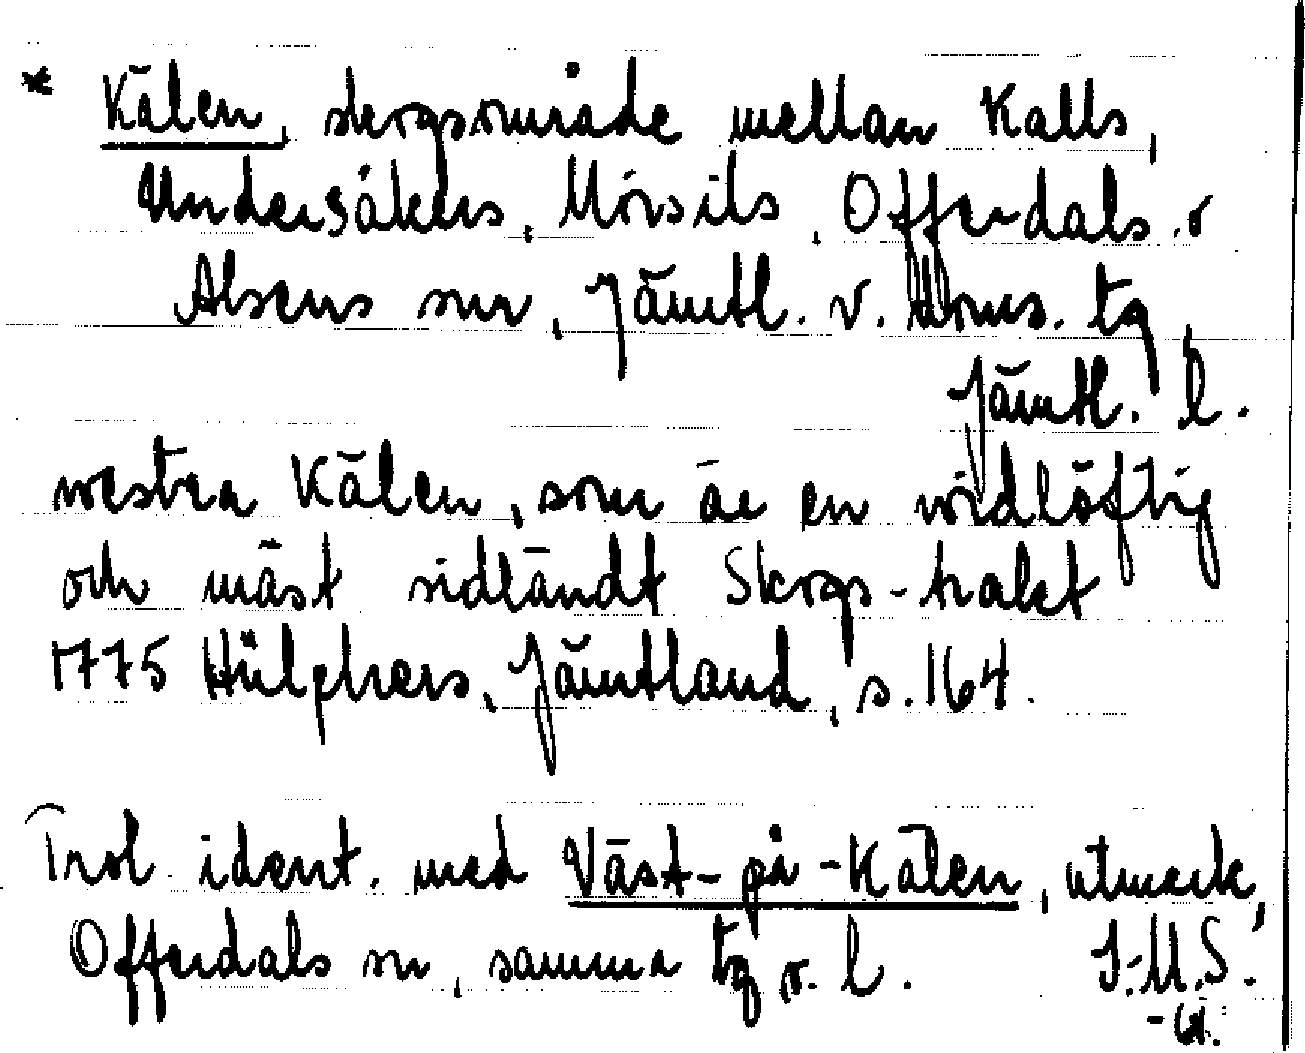 * Kälen, skogsområde mellan Kalls,
Undersåkers, Mörsils, Offerdals o
Alsens snr, Jämtl. v. doms. tg
Jämtl. l.
westra Kälen, som är en widlöftig
och mäst sidländt Skogs-trakt
1775 Hülphers, Jämtland, s. 164.
Trol ident. med Väst-på-Kälen, utmark,
Offerdals sn, samma tg o. l.
I.M.S.